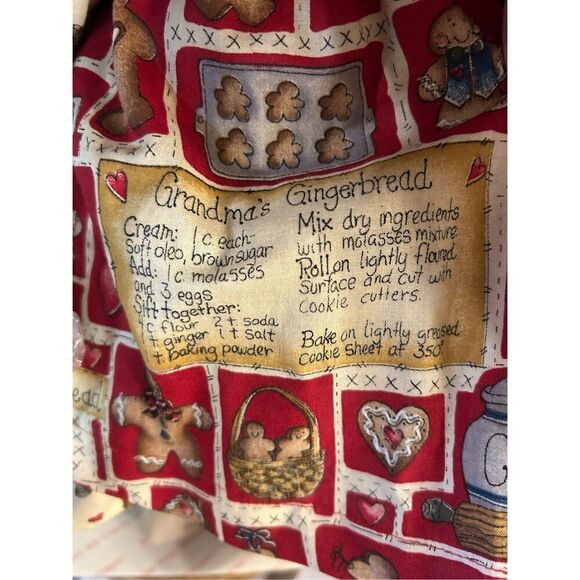 Grandma's Gingerbread
Cream: 1 c. each-
Soft oleo, brown sugar
Add: 1 c. molasses
and 3 eggs
Sift together:
c flour 2 t soda
t ginger 1 t salt
t baking powder
Mix dry ingredients
with molasses mixture.
Roll on lightly floured
Surface and cut with
Cookie cutters.
Bake on lightly greased
Cookie Sheet at 350°
ead
C